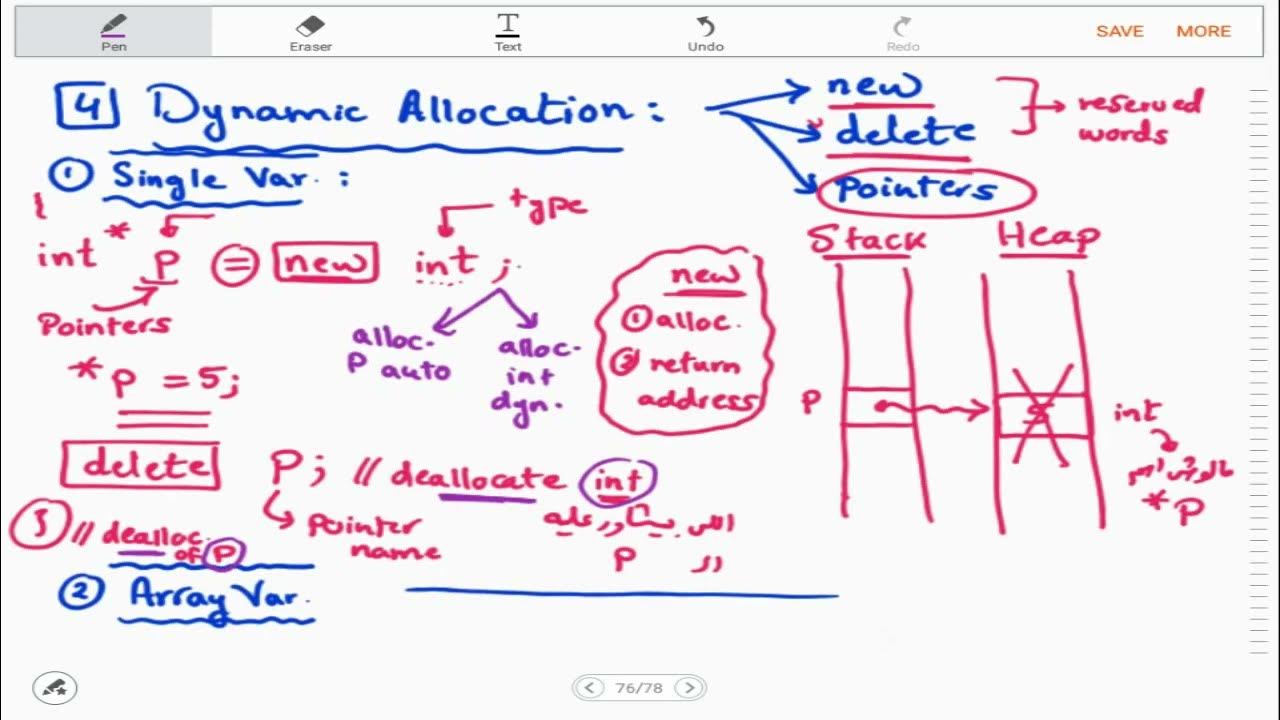 Pen Eraser Text Undo Redo SAVE MORE
4 Dynamic Allocation :
new
delete
pointers
reserved
words
① Single Var. :
{
type
int * P = new int ;
Pointers
alloc.
P auto
alloc.
int
dyn.
new
① alloc.
② return
address
Stack Heap
P
5
int
* P
* P = 5;
delete P; // deallocate int
pointer
name
اللى بيشاور عليه
ال P
} // dealloc.
of P
② Array Var.
76/78